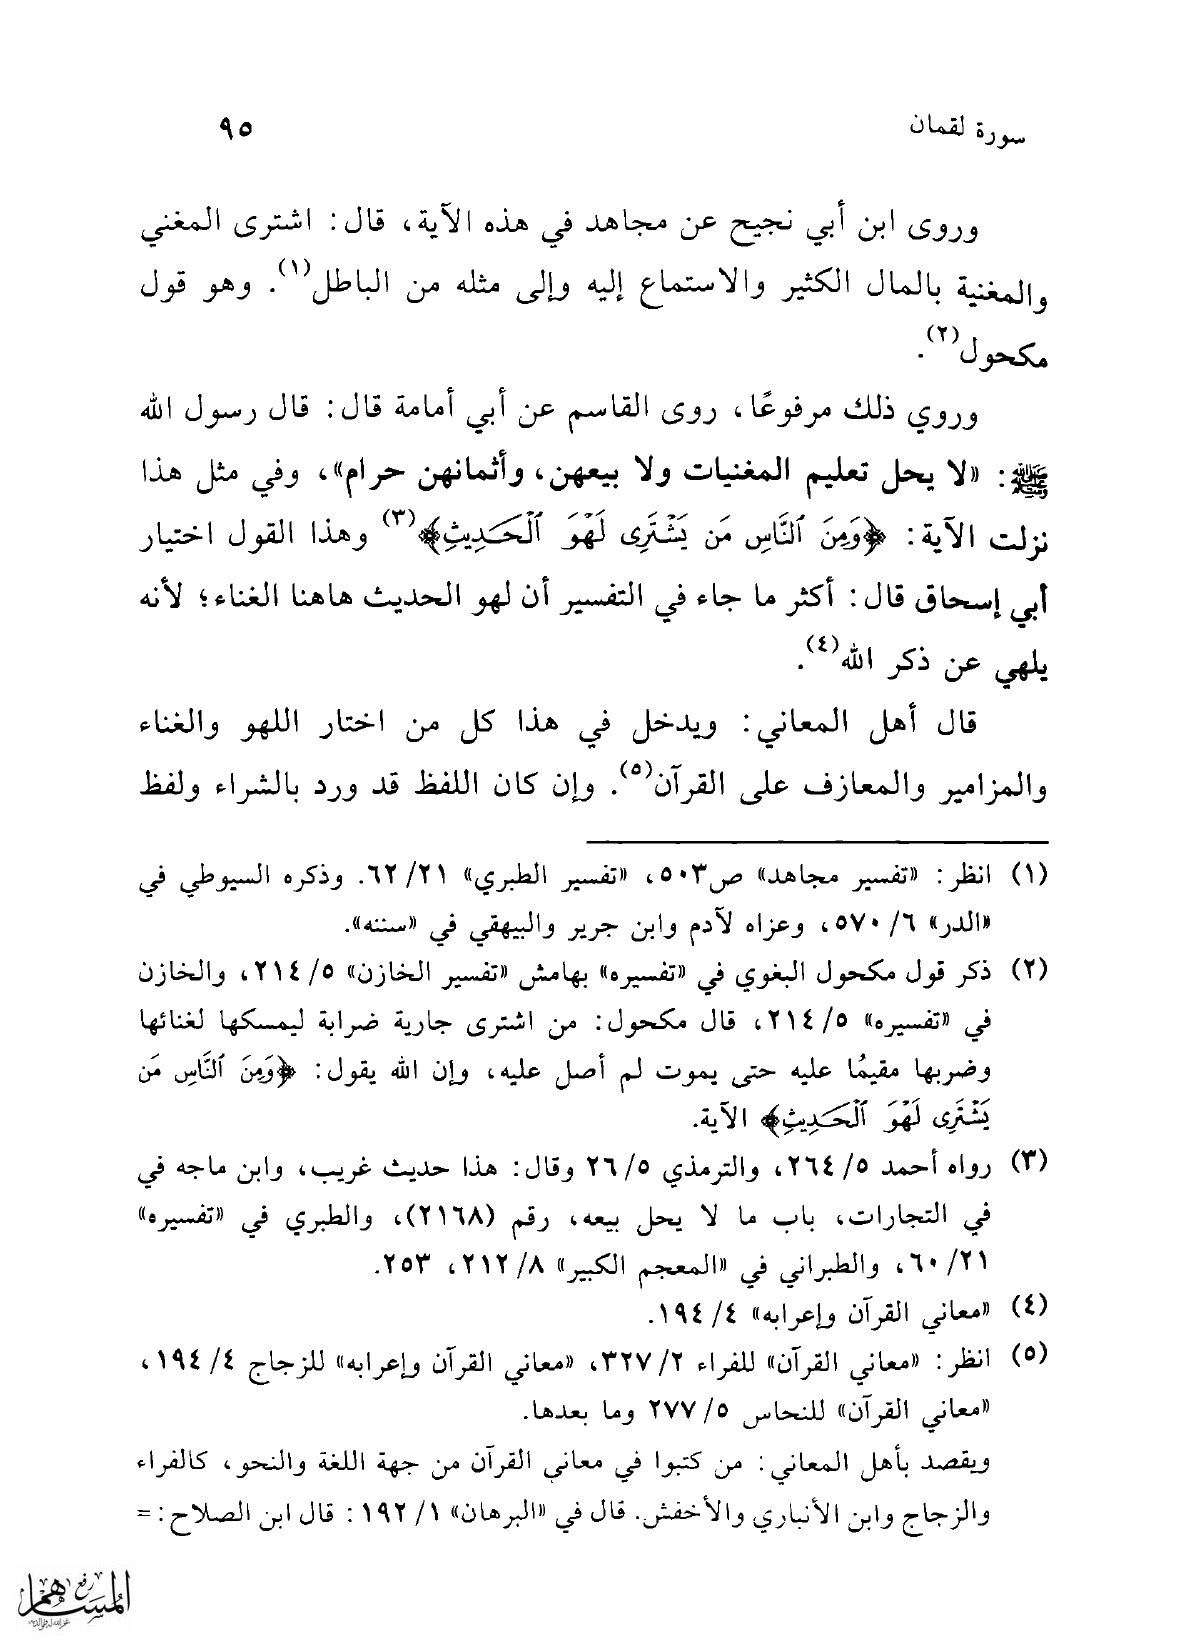 سورة لقمان ٩٥
وروى ابن أبي نجيح عن مجاهد في هذه الآية، قال: اشترى المغني
والمغنية بالمال الكثير والاستماع إليه وإلى مثله من الباطل(١). وهو قول
مكحول(٢).
وروي ذلك مرفوعًا، روى القاسم عن أبي أمامة قال: قال رسول الله
ﷺ: «لا يحل تعليم المغنيات ولا بيعهن، وأثمانهن حرام»، وفي مثل هذا
نزلت الآية: ﴿وَمِنَ ٱلنَّاسِ مَن يَشْتَرِى لَهْوَ ٱلْحَدِيثِ﴾(٣) وهذا القول اختيار
أبي إسحاق قال: أكثر ما جاء في التفسير أن لهو الحديث هاهنا الغناء؛ لأنه
يلهي عن ذكر الله(٤).
قال أهل المعاني: ويدخل في هذا كل من اختار اللهو والغناء
والمزامير والمعازف على القرآن(٥). وإن كان اللفظ قد ورد بالشراء ولفظ
(١) انظر: «تفسير مجاهد» ص٥٠٣، «تفسير الطبري» ٢١/ ٦٢. وذكره السيوطي في
«الدر» ٦/ ٥٧٠، وعزاه لآدم وابن جرير والبيهقي في «سننه».
(٢) ذكر قول مكحول البغوي في «تفسيره» بهامش «تفسير الخازن» ٥/ ٢١٤، والخازن
في «تفسيره» ٥/ ٢١٤، قال مكحول: من اشترى جارية ضرابة ليمسكها لغنائها
وضربها مقيمًا عليه حتى يموت لم أصل عليه، وإن الله يقول: ﴿وَمِنَ ٱلنَّاسِ مَن
يَشْتَرِى لَهْوَ ٱلْحَدِيثِ﴾ الآية.
(٣) رواه أحمد ٥/ ٢٦٤، والترمذي ٥/ ٢٦ وقال: هذا حديث غريب، وابن ماجه في
في التجارات، باب ما لا يحل بيعه، رقم (٢١٦٨)، والطبري في «تفسيره»
٢١/ ٦٠، والطبراني في «المعجم الكبير» ٨/ ٢١٢، ٢٥٣.
(٤) «معاني القرآن وإعرابه» ٤/ ١٩٤.
(٥) انظر: «معاني القرآن» للفراء ٢/ ٣٢٧، «معاني القرآن وإعرابه» للزجاج ٤/ ١٩٤،
«معاني القرآن» للنحاس ٥/ ٢٧٧ وما بعدها.
ويقصد بأهل المعاني: من كتبوا في معاني القرآن من جهة اللغة والنحو، كالفراء
والزجاج وابن الأنباري والأخفش. قال في «البرهان» ١/ ١٩٢: قال ابن الصلاح: =